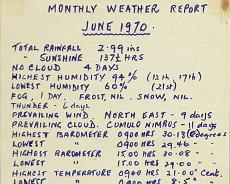 MONTHLY WEATHER REPORT
JUNE 1970.
TOTAL RAINFALL 2.99 ins
" SUNSHINE 137½ HRS
NO CLOUD 4 DAYS
HIGHEST HUMIDITY 94% (12th, 17th)
LOWEST HUMIDITY 60% (21st)
FOG, 1 DAY. FROST, NIL. SNOW, NIL.
THUNDER - 6 days
PREVAILING WIND, NORTH EAST - 9 days
PREVAILING CLOUD, CUMULO NIMBUS - 11 days
HIGHEST BAROMETER 0900 HRS 30.13
LOWEST " 0900 HRS 29.46
HIGHEST BAROMETER 1500 HRS 30.08
LOWEST " 1500 HRS 29.00
HIGHEST TEMPERATURE 0900 HRS 21.00° Cent.
LOWEST 0900 HRS